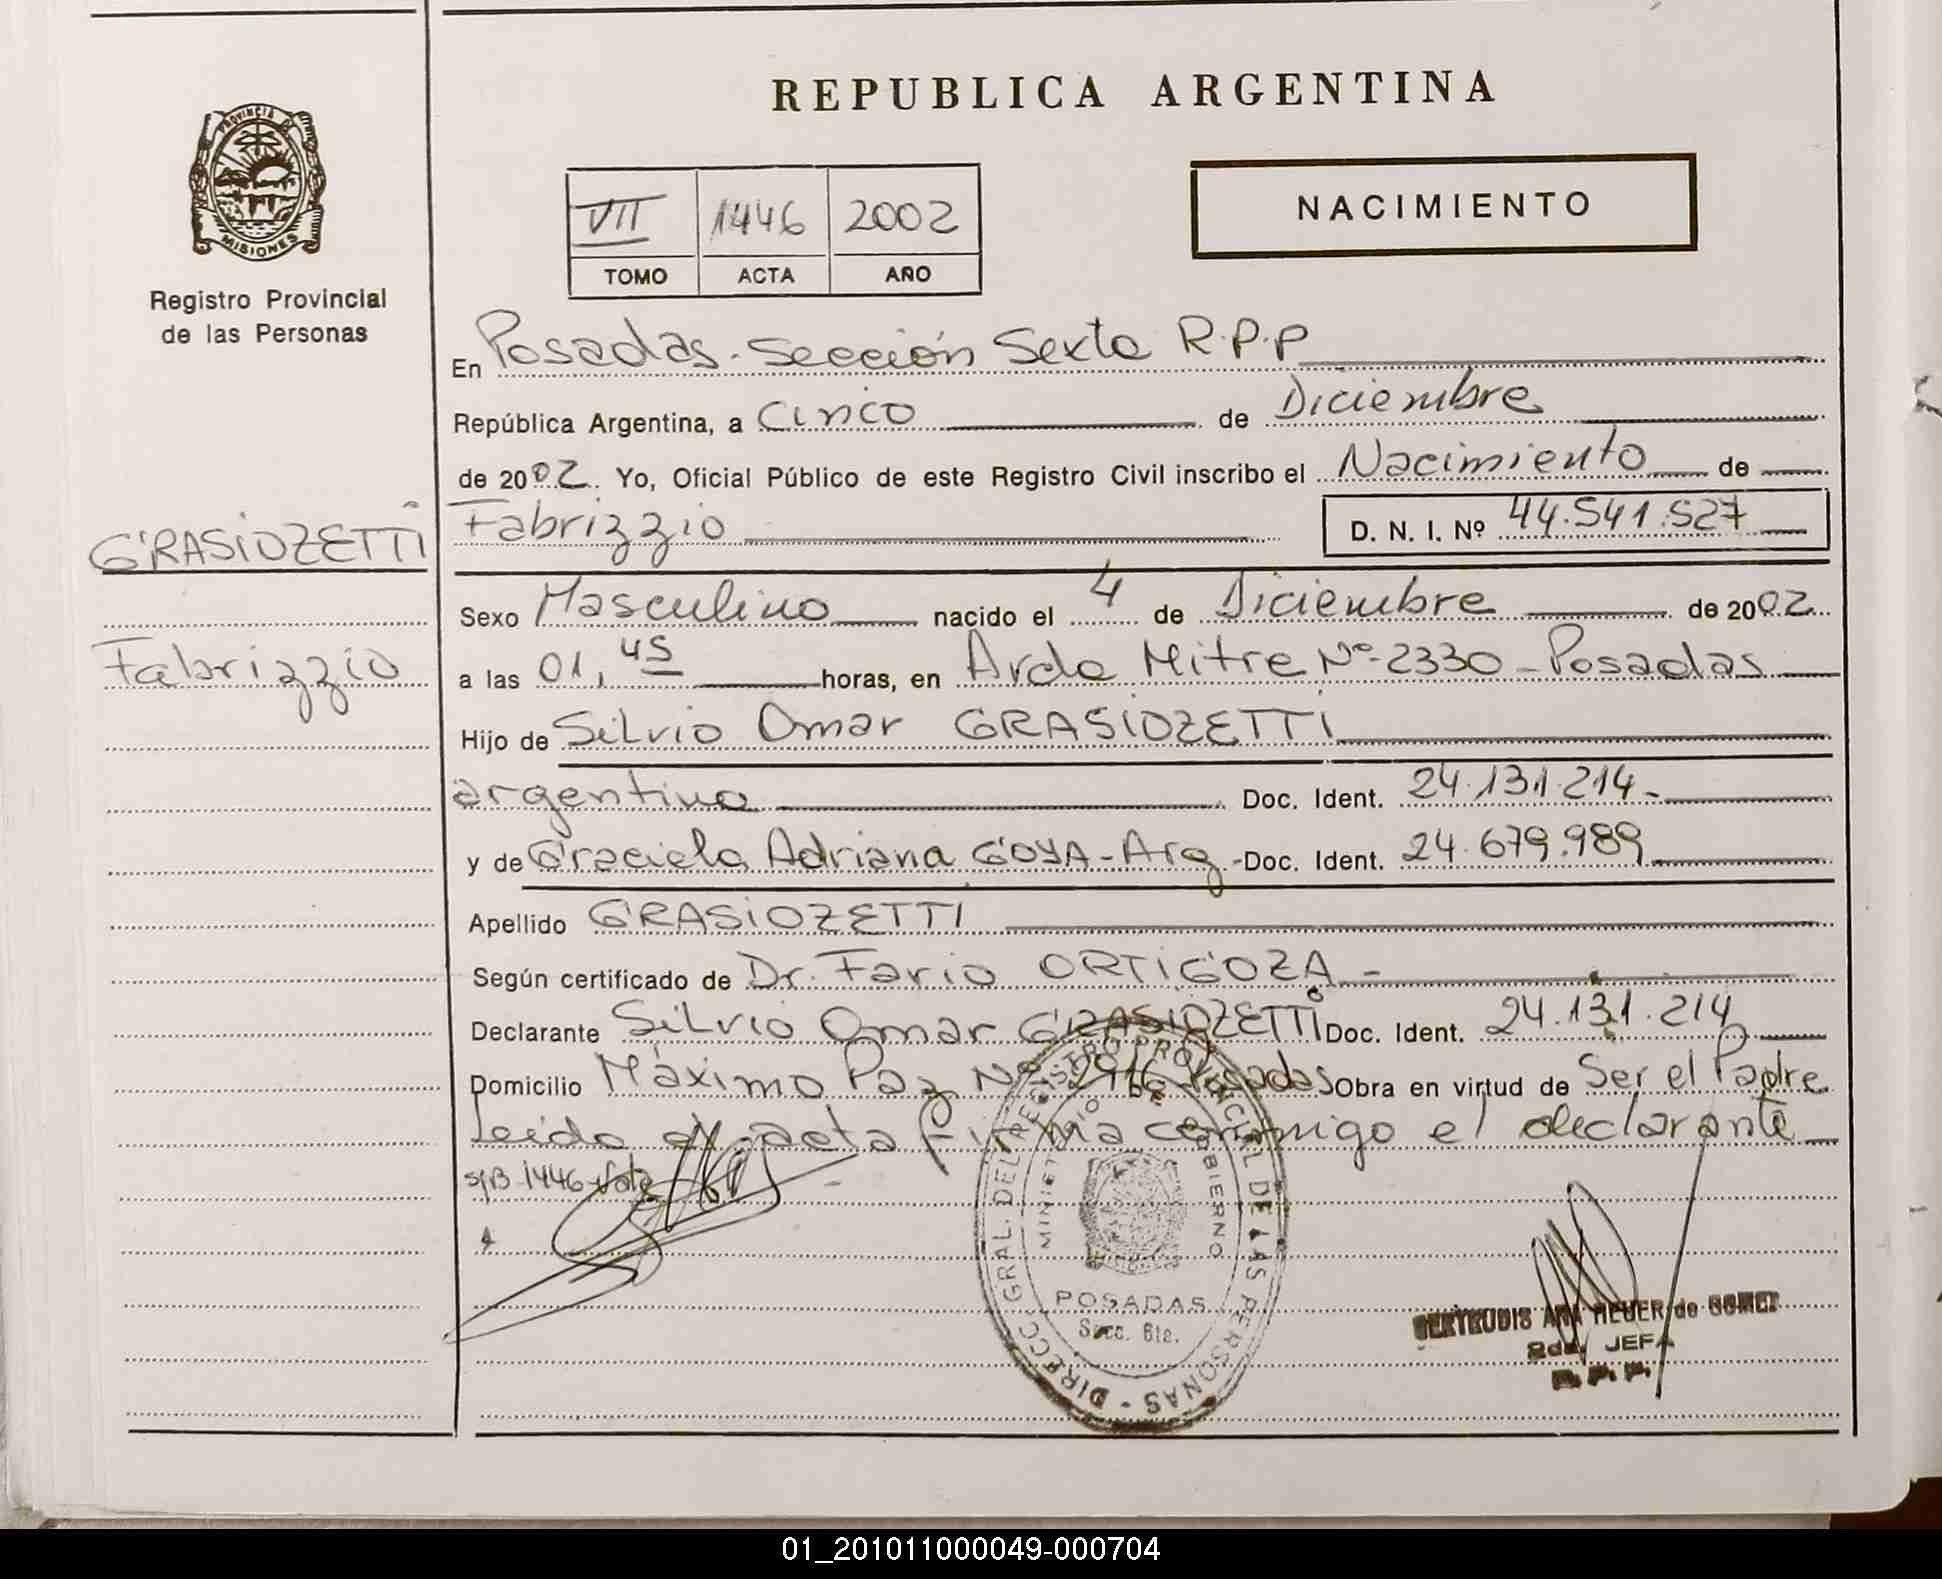 REPUBLICA ARGENTINA
PROVINCIA DE
MISIONES
Registro Provincial
de las Personas
NACIMIENTO
VII 1446 2002
TOMO ACTA AÑO
En Posadas. Sección Sexta R.P.P
República Argentina, a Cinco de Diciembre
de 2002. Yo, Oficial Público de este Registro Civil inscribo el Nacimiento de
GRASIOZETTI
Fabrizzio D. N. I. Nº 44.541.527
Sexo Masculino nacido el 4 de Diciembre de 2002
Fabrizzio
a las 01,45 horas, en Avda Mitre Nº-2330-Posadas
Hijo de Silvio Omar GRASIOZETTI
argentino Doc. Ident. 24.131.214-
y de Graciela Adriana GOYA-Arg.-Doc. Ident. 24.679.989
Apellido GRASIOZETTI
Según certificado de Dr. Fario ORTIGOZA-
Declarante Silvio Omar GRASIOZETTI Doc. Ident. 24.131.214
Domicilio Máximo Paz Nº 2916 Posadas Obra en virtud de Ser el Padre
Leida el acta firma conmigo el declarante
s/B-1446-Vale
DIRECC. GRAL. DEL REGISTRO PROVINCIAL DE LAS PERSONAS
MINISTERIO DE GOBIERNO
POSADAS
Secc. 6ta.
GERTRUDIS ANA HEUER de GOMEZ
2da. JEFA
R.P.P.
01_201011000049-000704